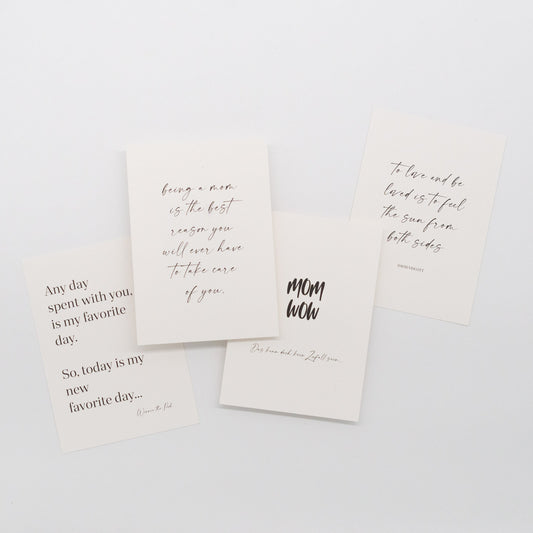 Any day
spent with you,
is my favorite
day.
So, today is my
new
favorite day...
Winnie the Pooh
being a mom
is the best
reason you
will ever have
to take care
of you.
MOM
WOW
Das kann doch kein Zufall sein.
to love and be
loved is to feel
the sun from
both sides